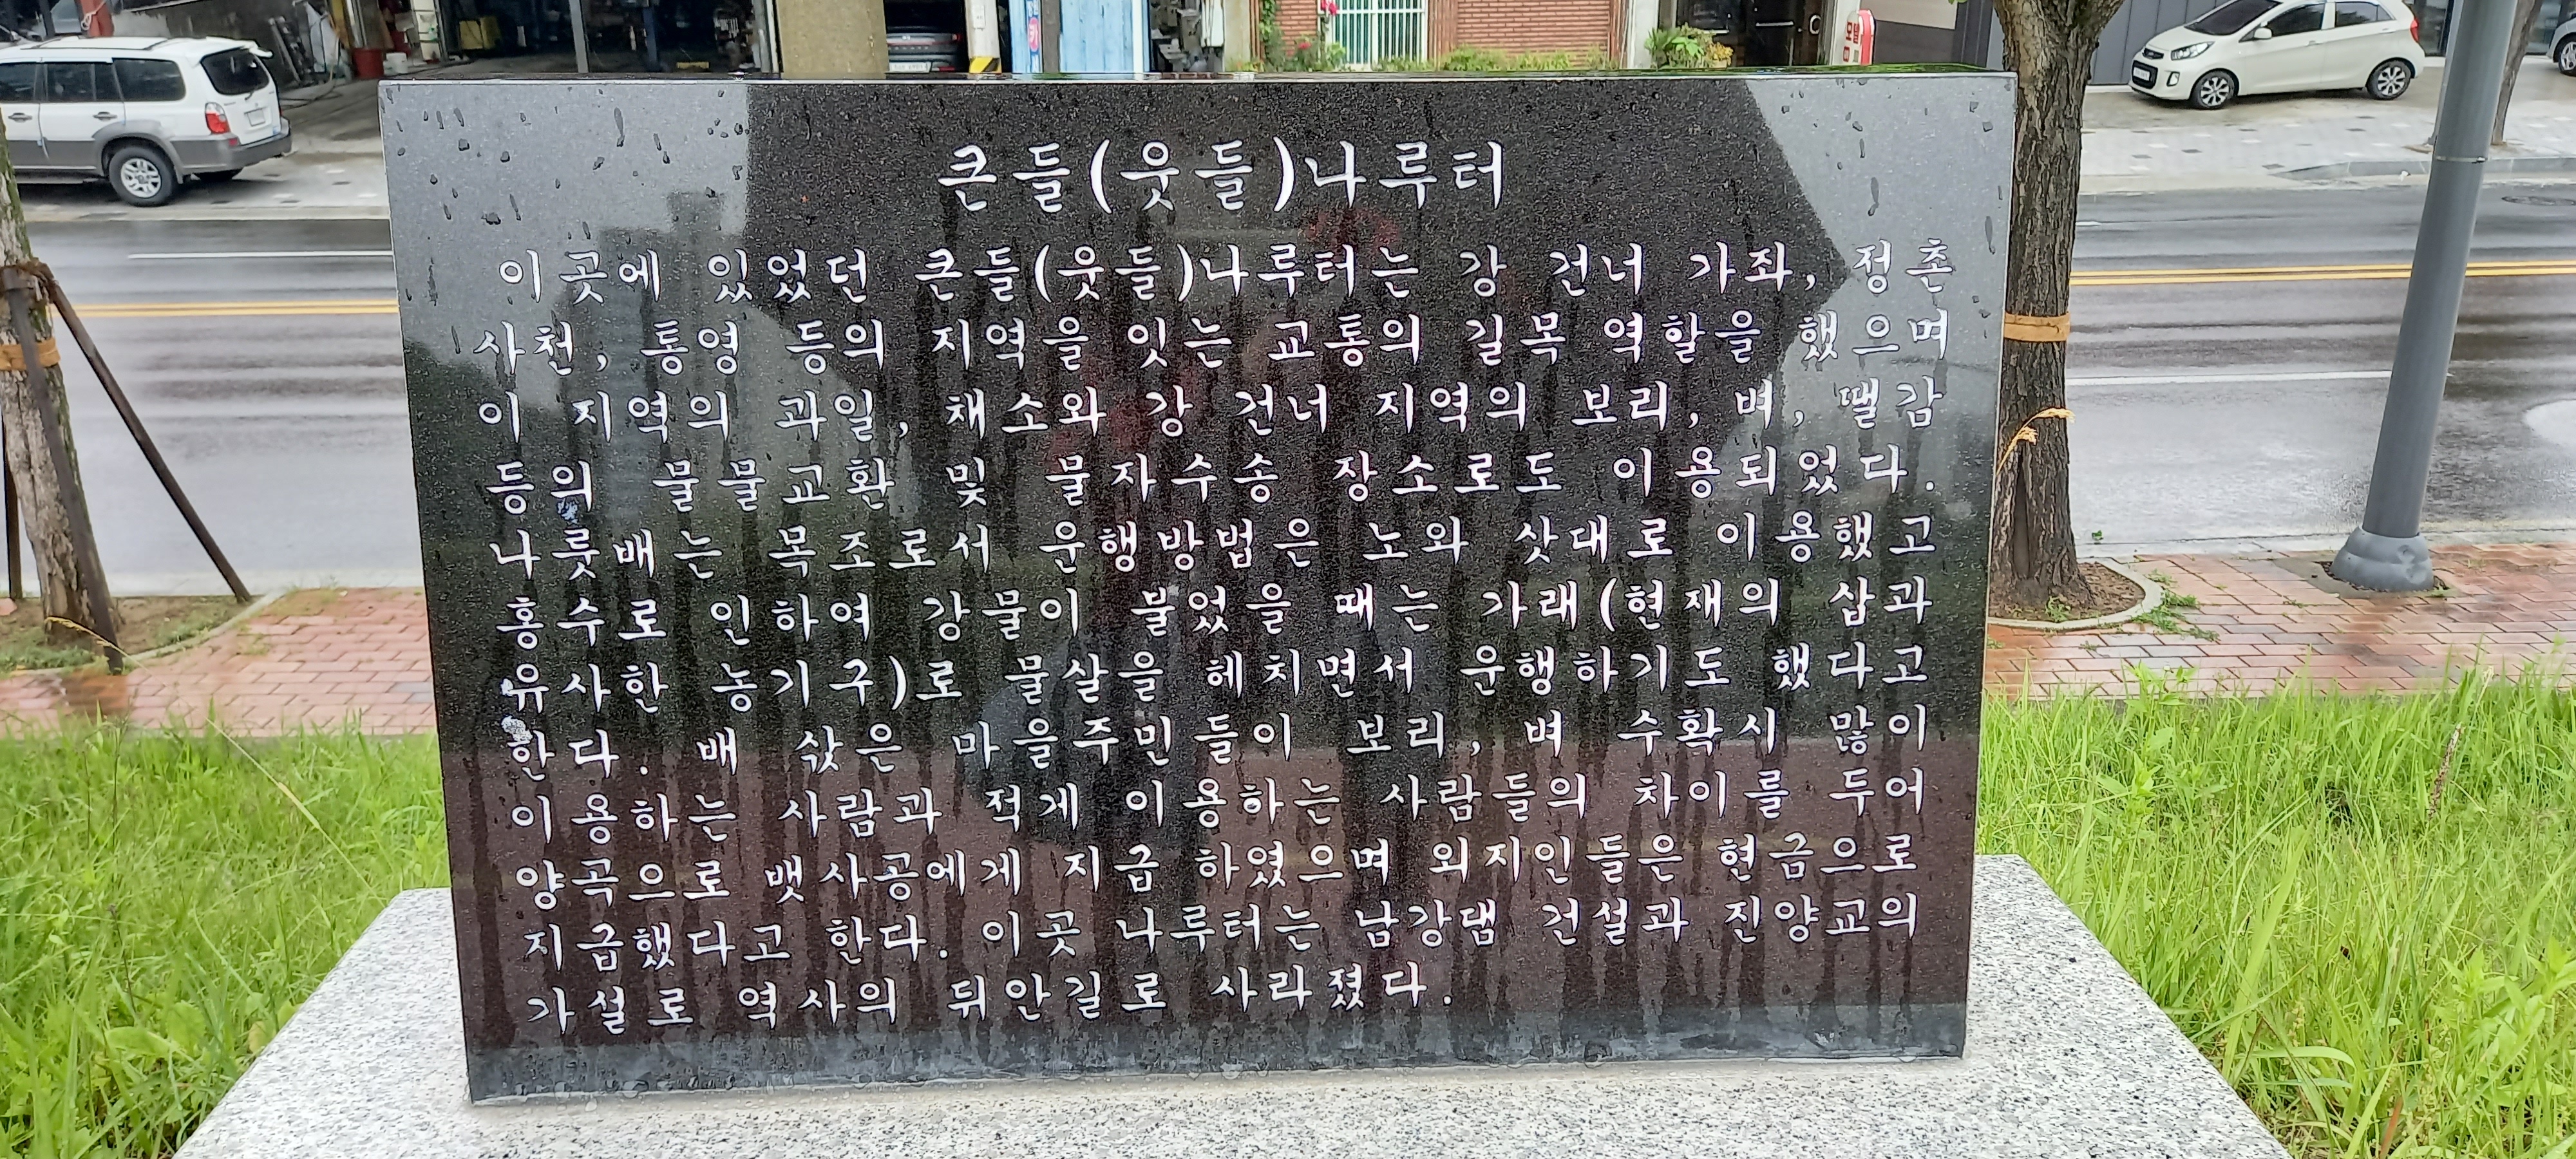 큰들(웃들)나루터
이곳에 있었던 큰들(웃들)나루터는 강 건너 가좌, 정촌
사천, 통영 등의 지역을 잇는 교통의 길목 역할을 했으며
이 지역의 과일, 채소와 강 건너 지역의 보리, 벼, 땔감
등의 물물교환 및 물자수송 장소로도 이용되었다.
나룻배는 목조로서 운행방법은 노와 삿대로 이용했고
홍수로 인하여 강물이 불었을 때는 가래(현재의 삽과
유사한 농기구)로 물살을 헤치면서 운행하기도 했다고
한다. 배 삯은 마을주민들이 보리, 벼 수확시 많이
이용하는 사람과 적게 이용하는 사람들의 차이를 두어
양곡으로 뱃사공에게 지급 하였으며 외지인들은 현금으로
지급했다고 한다. 이곳 나루터는 남강댐 건설과 진양교의
가설로 역사의 뒤안길로 사라졌다.